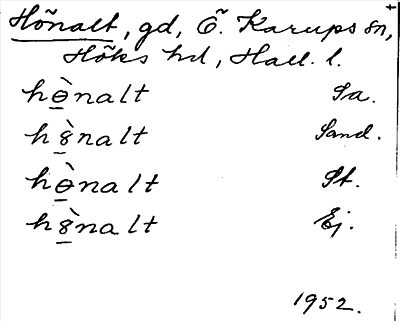 Hõnalt, gd, Õ. Karups sn,
Höks hd, Hall. l.
hɵ̲̀nalt Sa.
h8̲̀nalt Sand.
hɵ̲̀nalt St.
h8̲̀nalt Ej.
1952.